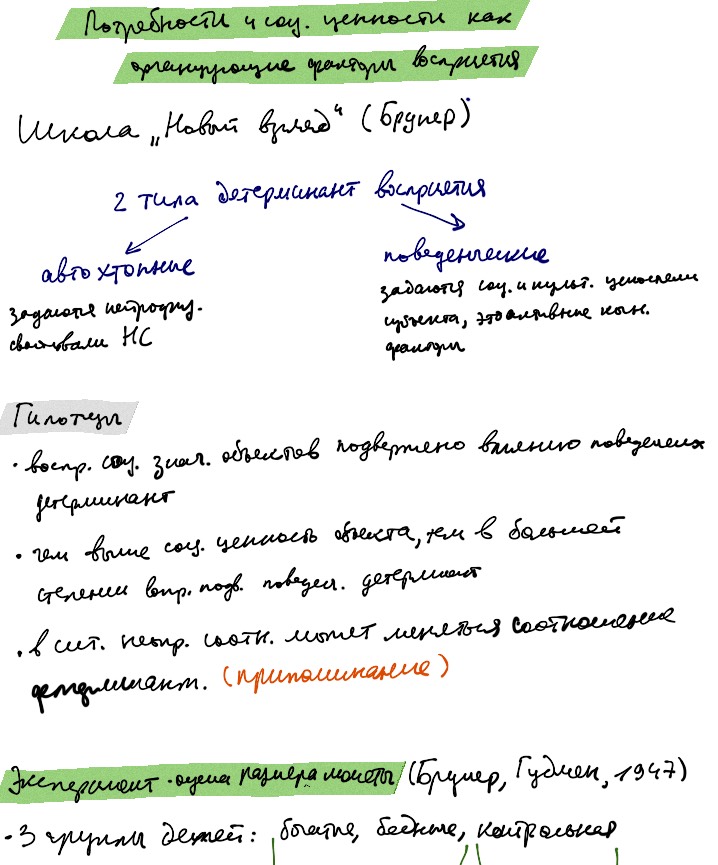 Потребности и соц. ценности как
организующие факторы восприятия
Школа „Новый взгляд“ (Брунер)
2 типа детерминант восприятия
автохтонные
поведенческие
задаются нейрофиз.
свойствами НС
задаются соц. и культ. ценностями
субъекта, это активные
факторы
Гипотезы
• воспр. соц. знач. объектов подвержено влиянию поведенческих
детерминант
• чем выше соц. ценность объекта, тем в большей
степени подв. поведен. детерминант
• в сит. неопр. может меняться соотношение
детерминант. (припоминание)
Эксперимент - оценка размера монеты (Брунер, Гудмен, 1947)
• 3 группы детей: богатые, бедные, контрольная